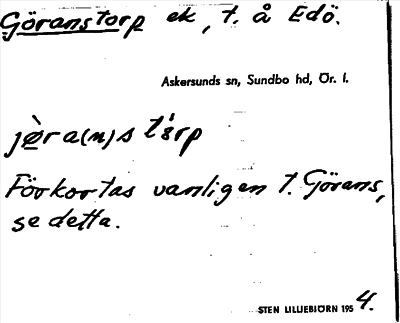 Göranstorp ek, t. å Edö.
Askersunds sn, Sundbo hd, Ör. l.
jøra(n)s tårp
Förkortas vanligen t. Görans,
se detta.
STEN LILLJEBIÖRN 1954.